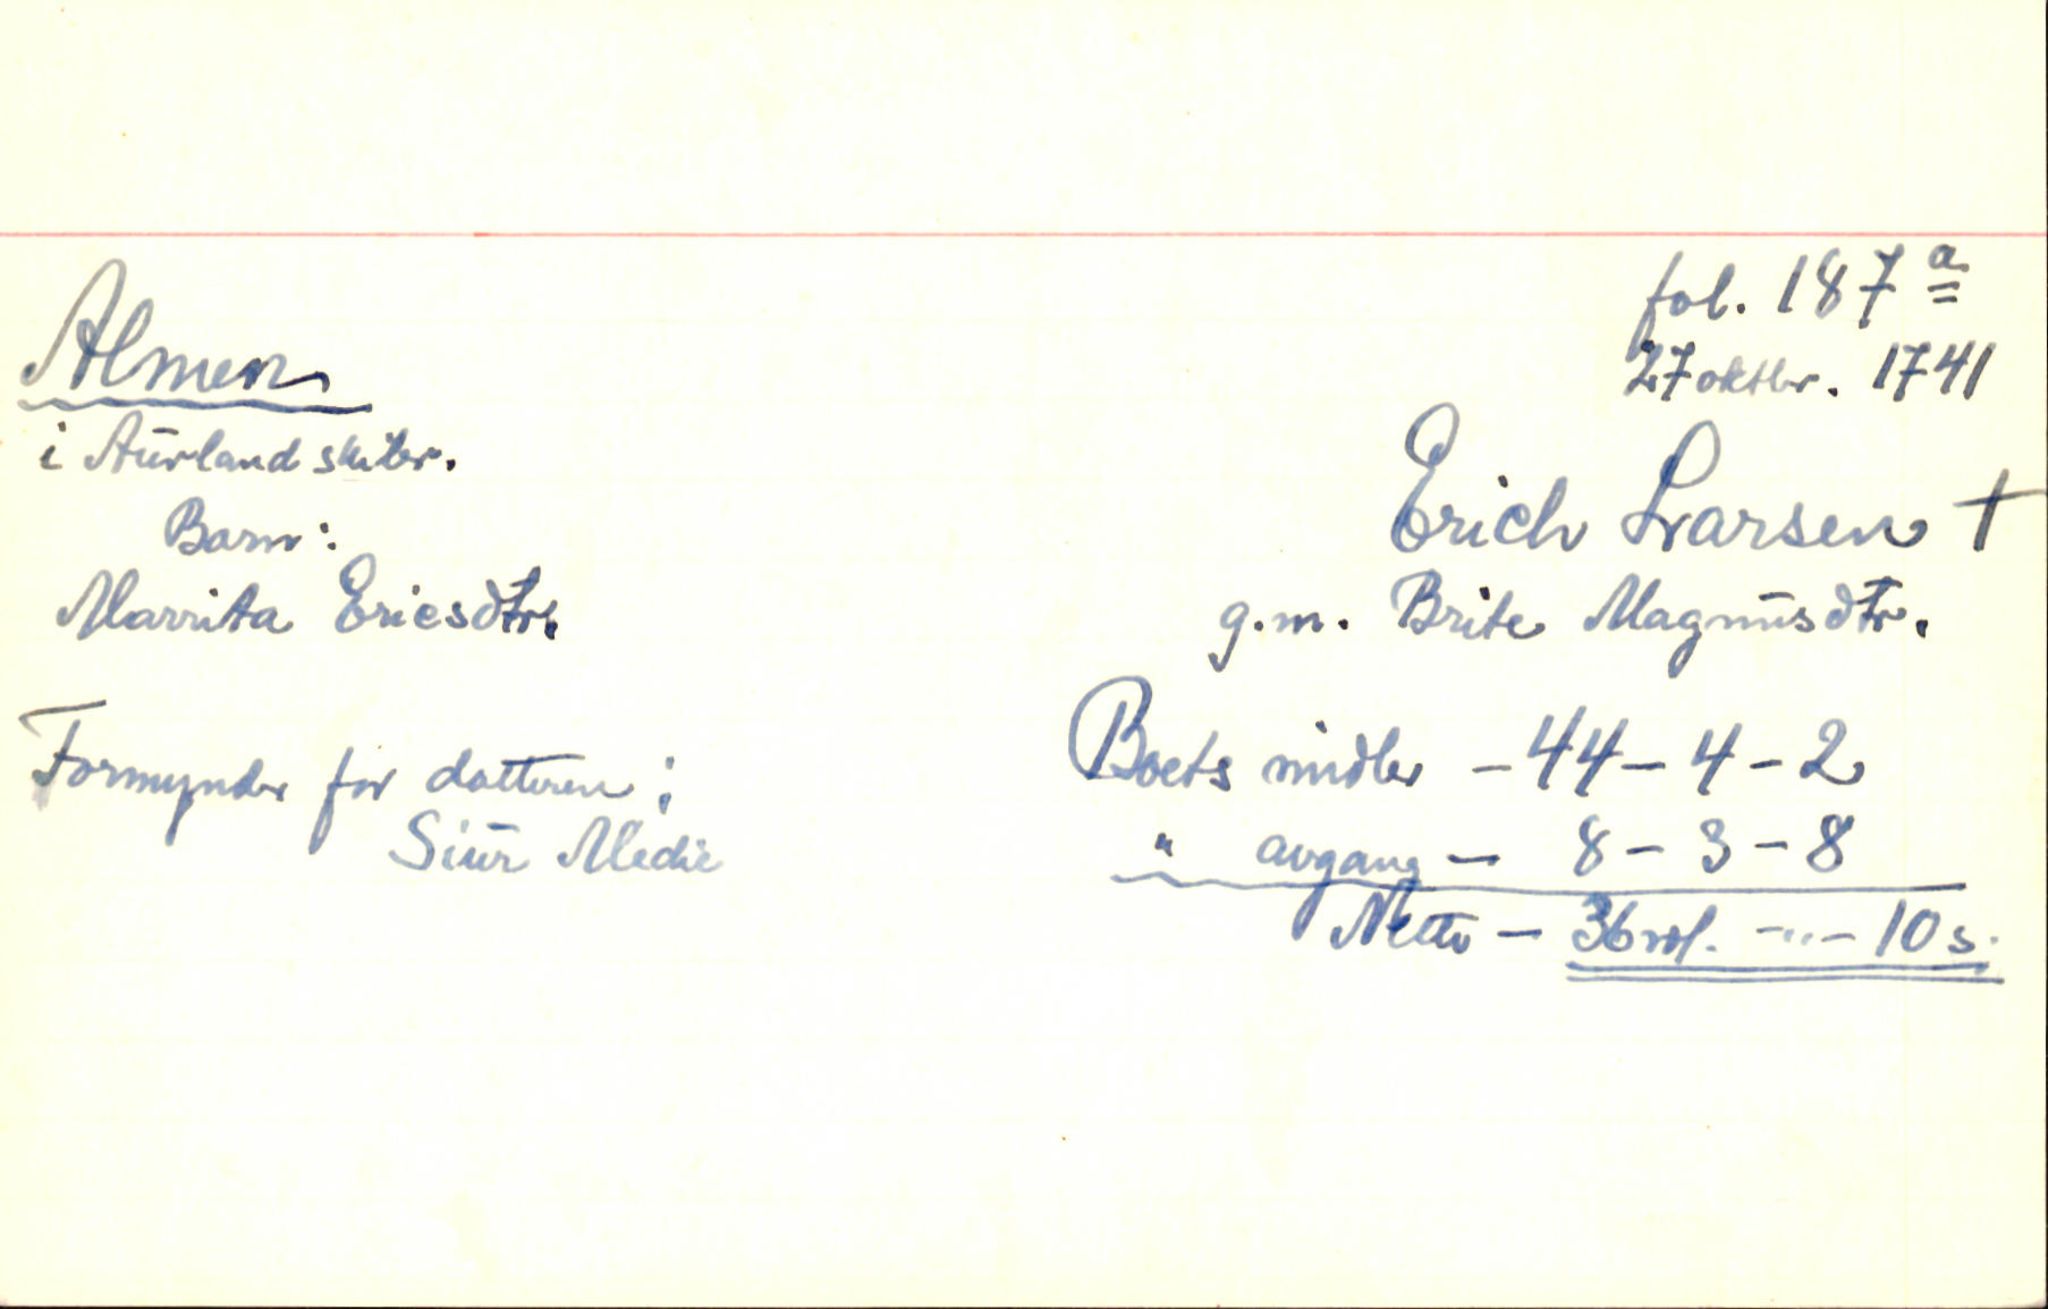 fol. 187 a
27 oktbr. 1741
Almen
i Aurland skibr.
Erich Larsen †
g.m. Brite Magnusdtr.
Barn:
Marrita Ericsdtr.
Boets midler - 44 - 4 - 2
" avgang - 8 - 3 - 8
Netto - 36 rdl. - " - 10 s.
Formynder for datteren:
Siur Medie